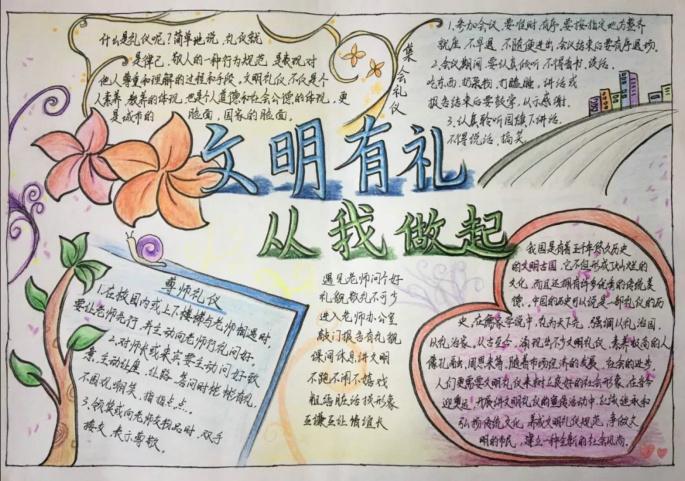 什么是礼仪呢？简单地说，礼仪就
是律己、敬人的一种行为规范，是表现对
他人尊重和理解的过程和手段。文明礼仪，不仅是个
人素养、教养的体现，也是个人道德和社会公德的体现。更
是城市的脸面，国家的脸面。
集会礼仪
1.参加会议，要准时，有序，要按指定地方整齐
就座，不早退，不随便进出，会议结束后要有序退场。
2.会议期间，要认真倾听，不得看书、谈话、
吃东西、打瞌睡，讲话或
报告结束后要鼓掌，以示感谢。
3.认真聆听国旗下讲话，
不得说话、搞笑。
文明有礼
从我做起
尊师礼仪
1.在校园内或上下楼梯与老师相遇时，
要让老师先行，并主动向老师行礼问好
2.对师长或来宾要主动问好敬
意，主动让座、让路，答问时彬彬有礼，
不围观嘲笑、指指点点。
3.领奖或向老师交物品时，双手
接交，表示尊敬。
遇见老师问个好
礼貌敬礼不可少
进入老师办公室
敲门报告有礼貌
课间休息讲文明
不跑不闹不嬉戏
粗话脏话损形象
互谦互让情谊长
我国是有着五千年悠久历史
的文明古国，它不但形成了灿烂的
文化，而且还拥有许多优秀的传统美
德。中国的历史可以说是一部礼仪的历
史，在儒家学说中，礼为天下先，强调以礼治国，
以礼治家，从古至今，
人们更需要文明礼仪来树立良好的社会形象，
弘扬传统文化，养成文明礼仪规范，争做文
明的市民，建立一种全新的社会风尚。